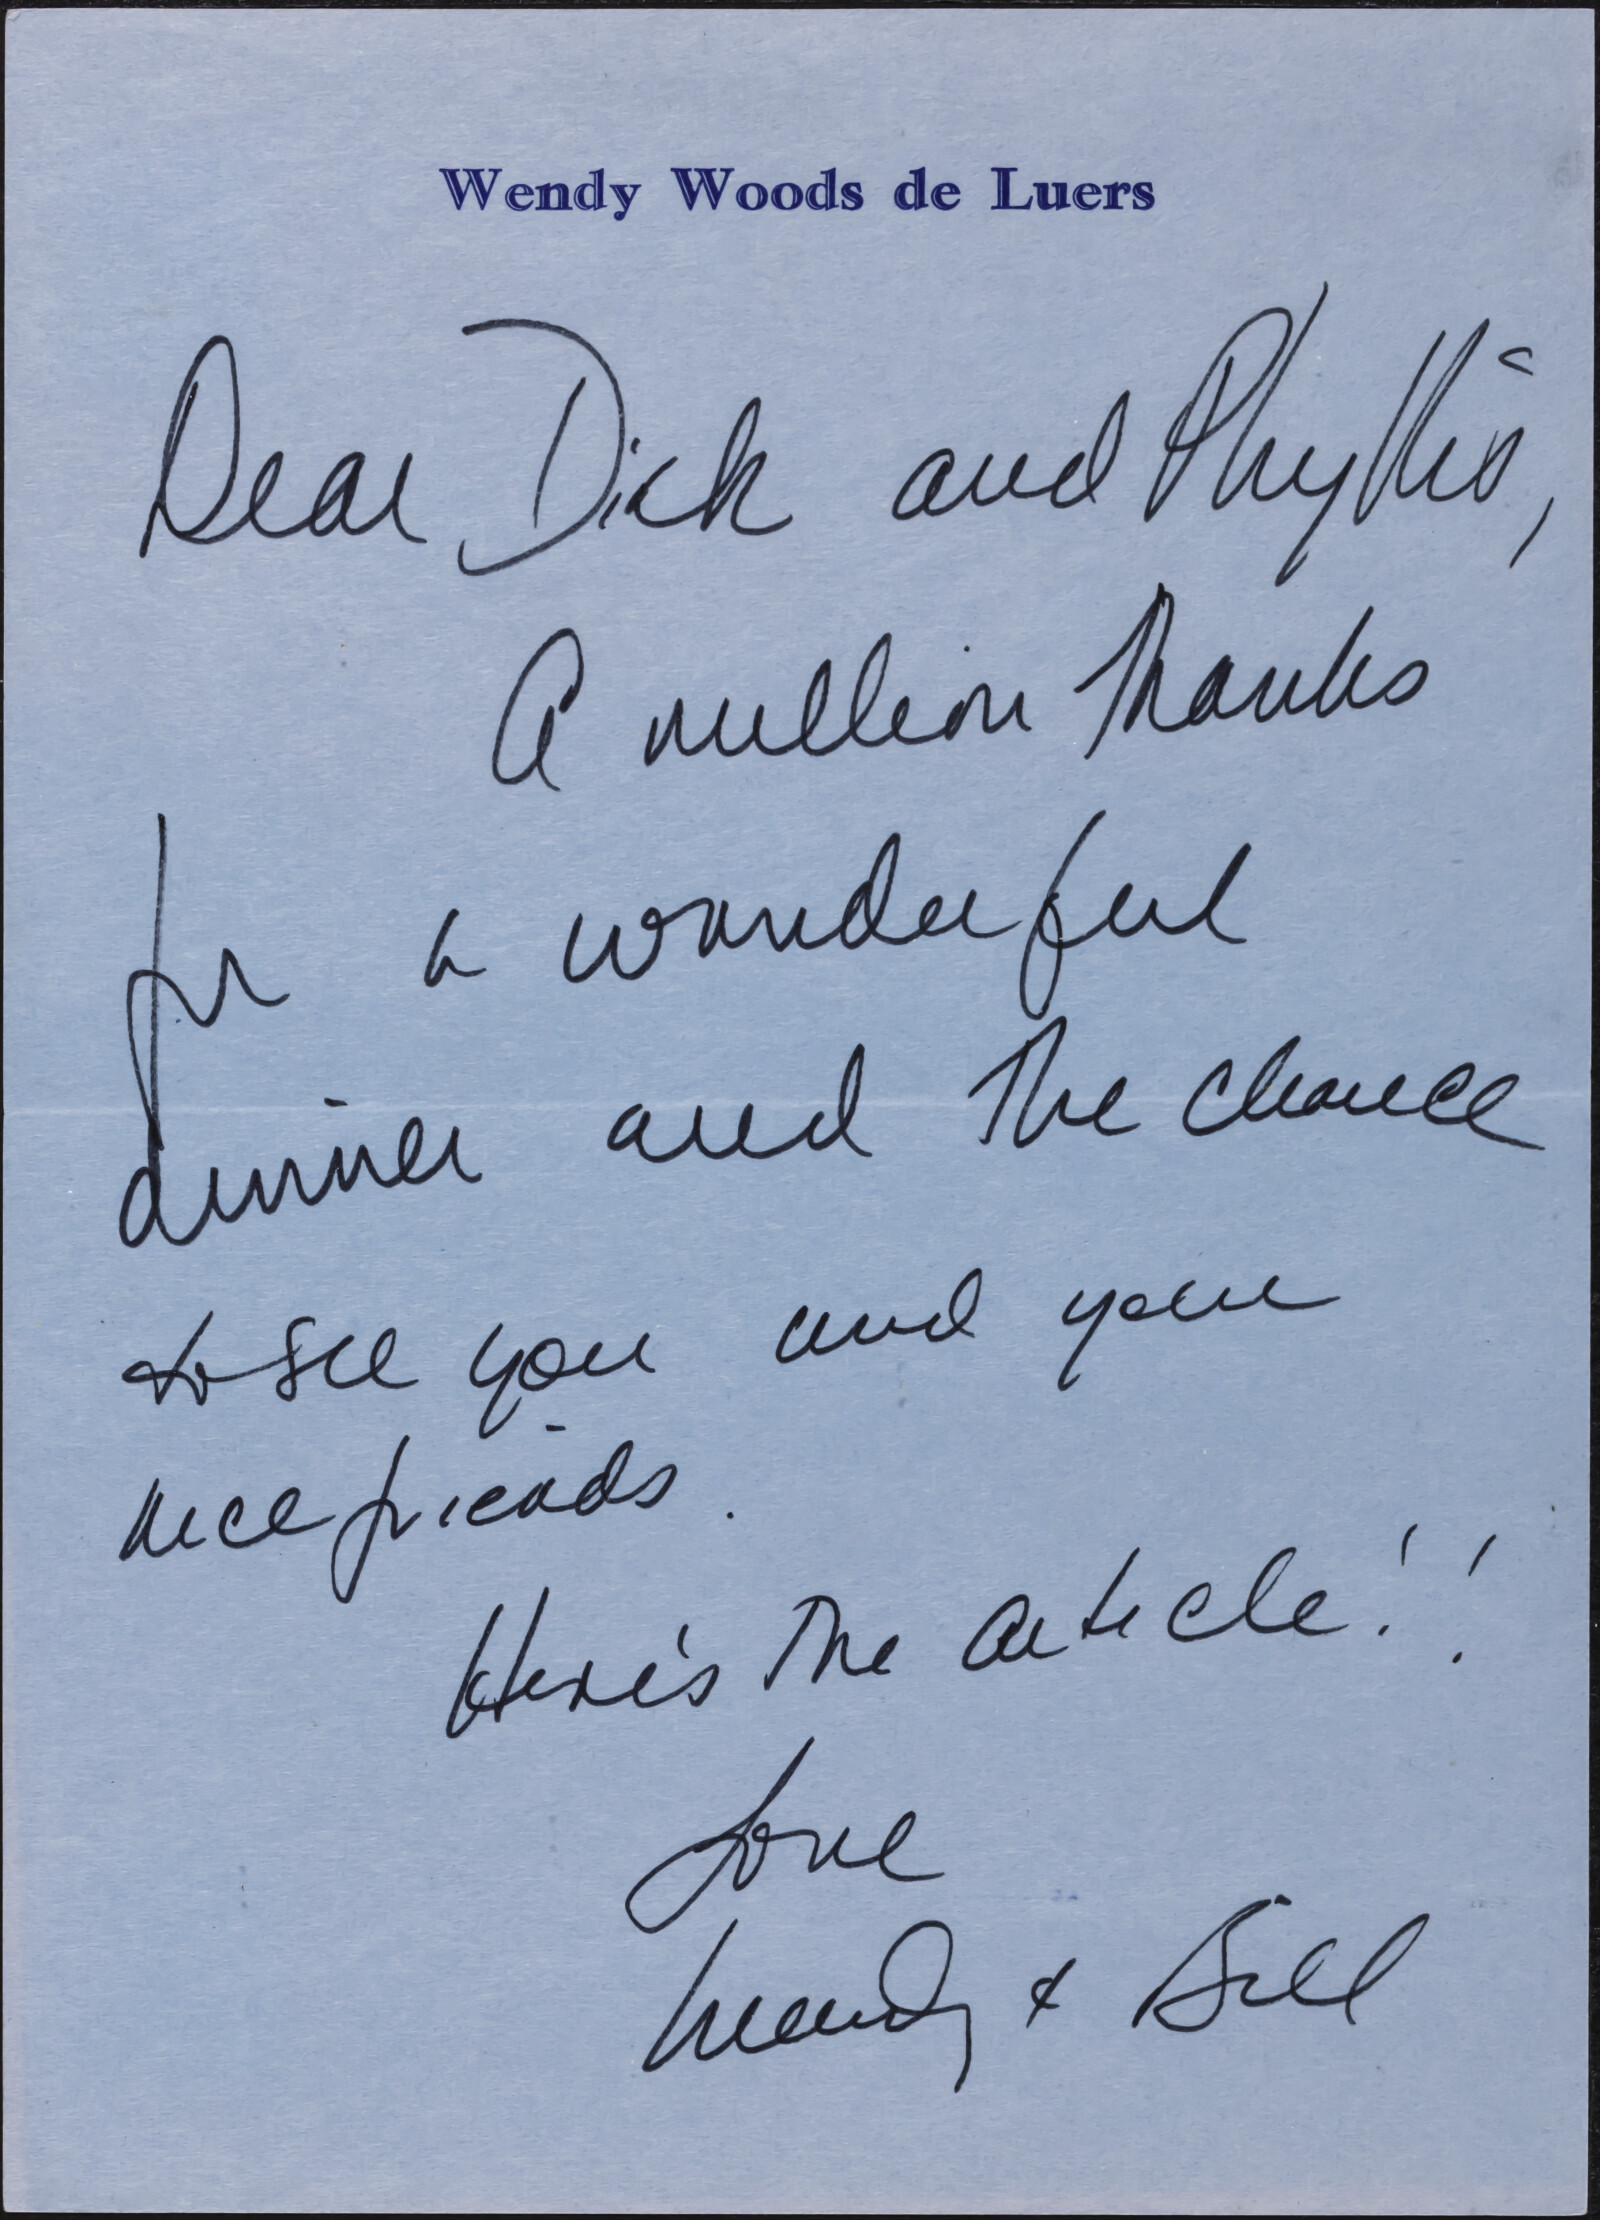 Wendy Woods de Luers
Dear Dick and Phyllis,
A million thanks
for a wonderful
dinner and the chance
to see you and your
nice friends.
Here's the article!!
Love
Wendy & Bill